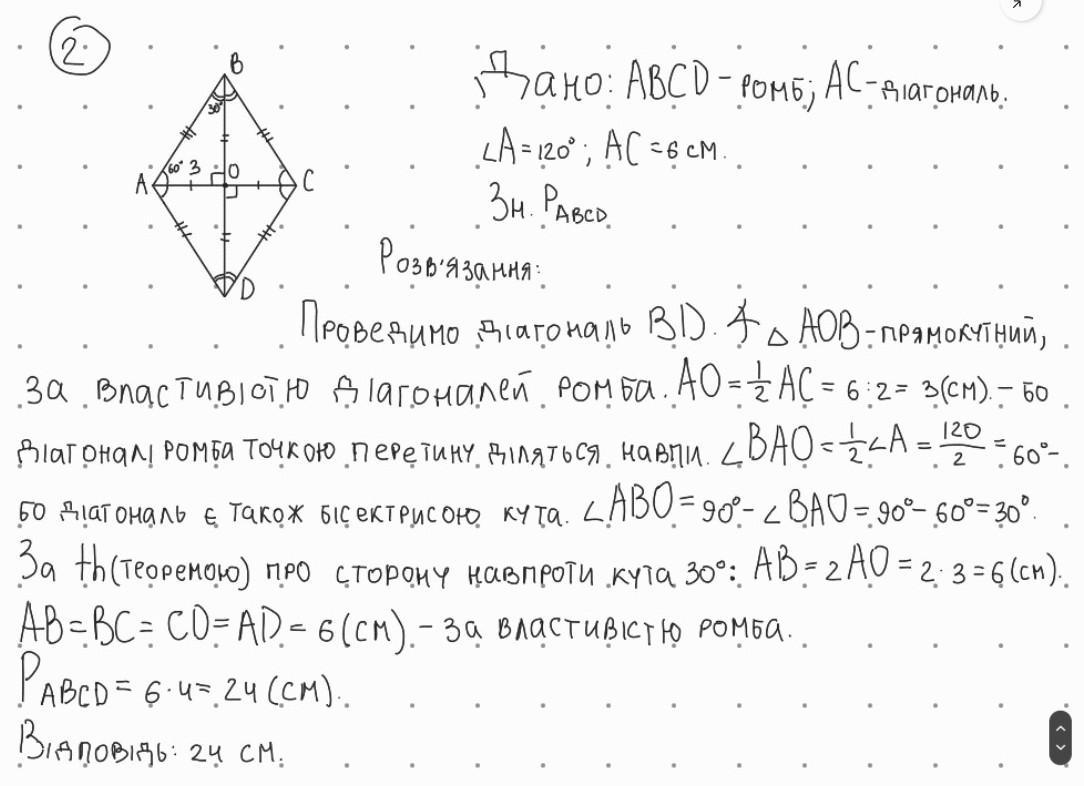 2
B
30°
A 60° 3 O C
D
Дано: ABCD - ромб; AC - діагональ.
∠A = 120°; AC = 6 см.
Зн. P ABCD
Розв'язання:
Проведимо діагональ BD. △ AOB - прямокутний,
за властивістю діагоналей ромба. AO = 1/2 AC = 6 : 2 = 3 (см). - бо
діагоналі ромба точкою перетину діляться навпи. ∠BAO = 1/2 ∠A = 120/2 = 60° -
бо діагональ є також бісектрисою кута. ∠ABO = 90° - ∠BAO = 90° - 60° = 30°.
За th (теоремою) про сторону навпроти кута 30°: AB = 2 AO = 2 · 3 = 6 (см).
AB = BC = CD = AD = 6 (см) - за властивістю ромба.
P ABCD = 6 · 4 = 24 (см).
Відповідь: 24 см.